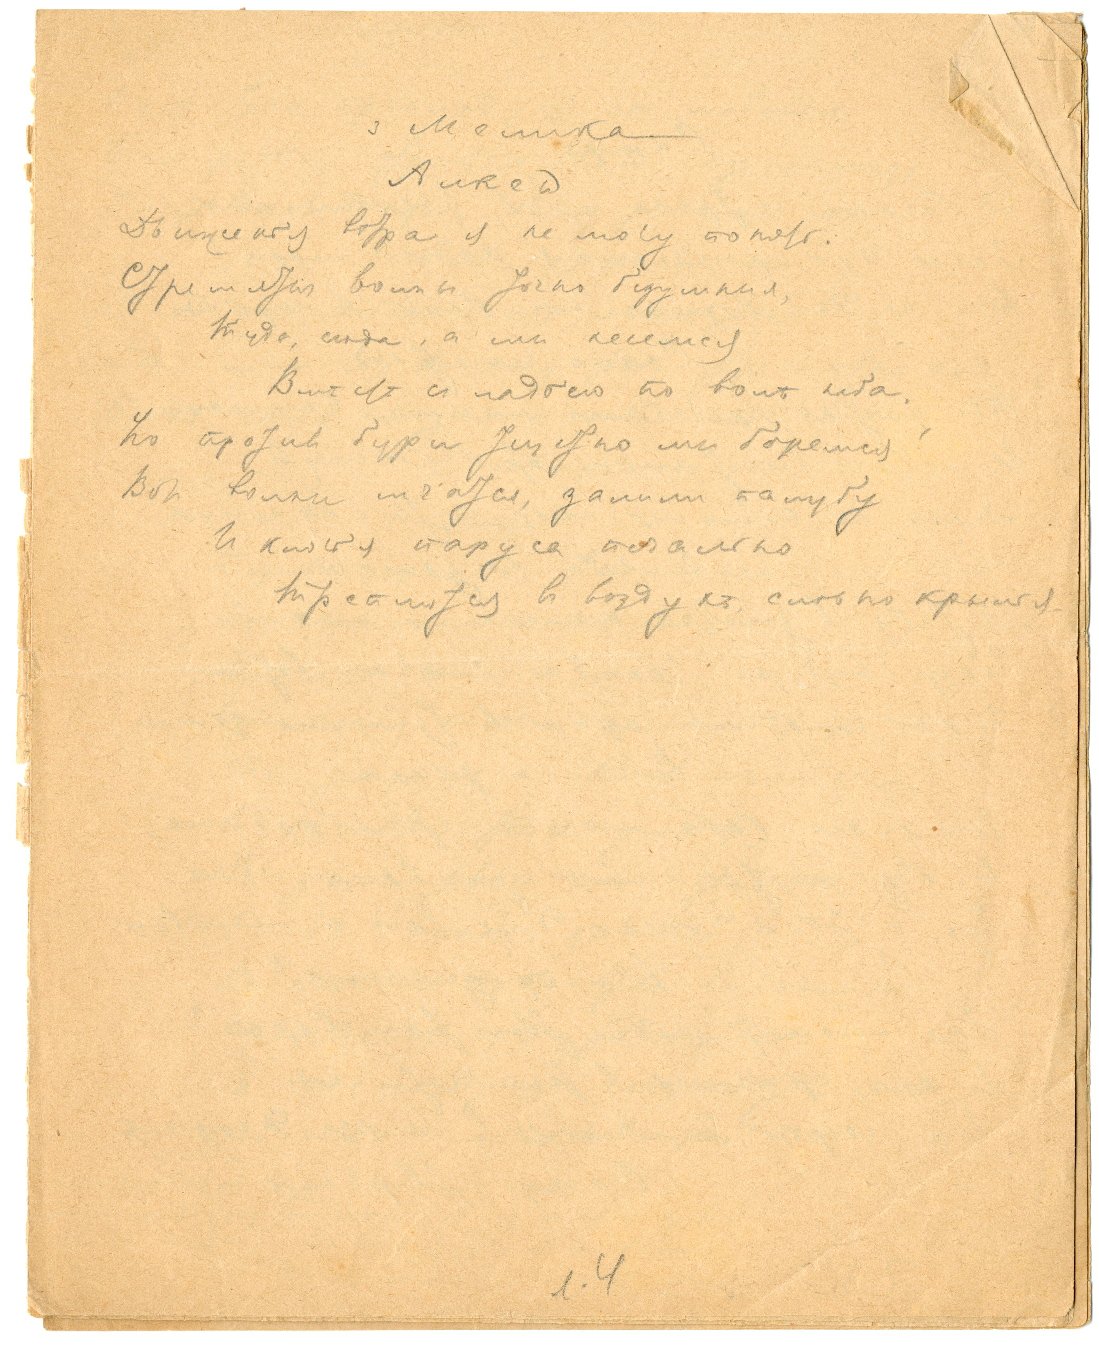 3 Мелика
Алкей
Движенья ветра я не могу понять.
Стремятся волны точно безумныя,
Туда, сюда, а мы несемся
Вместе с ладьею по волѣ
Но против бури тщетно мы боремся
Вот волны мчатся, залили палубу
И клочья паруса печально
Треплются в воздухѣ, словно крылья.
л. 4